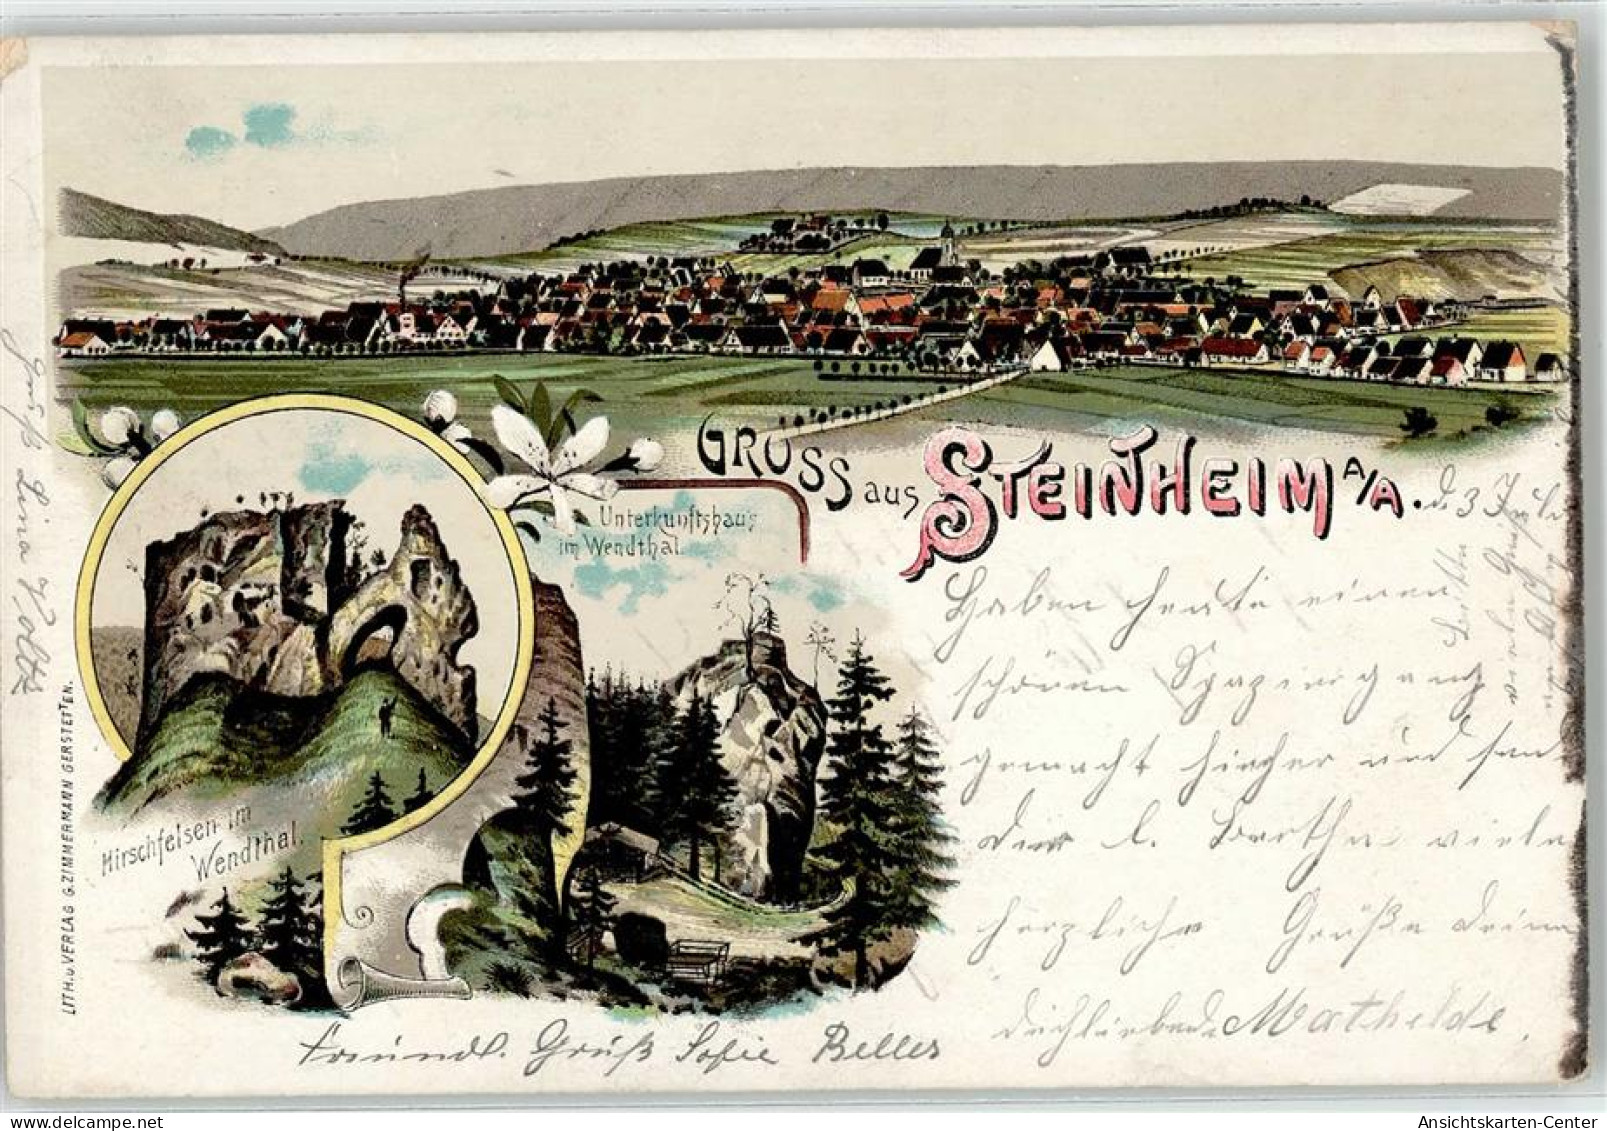 GRUSS aus STEINHEIM A/A.
d. 3 Juli
Unterkunftshaus
im Wendthal.
Hirschfelsen im
Wendthal.
LITH. u. VERLAG G. ZIMMERMANN GERSTETTEN.
Haben heute einen
schönen Spaziergang
gemacht hieher und
Dir l. Bertha viele
herzliche Grüße Deine
Dichliebende Mathilde
Freundl. Gruß Sofie Beller
Gruß Lina Holtz
Ansichtskarten-Center